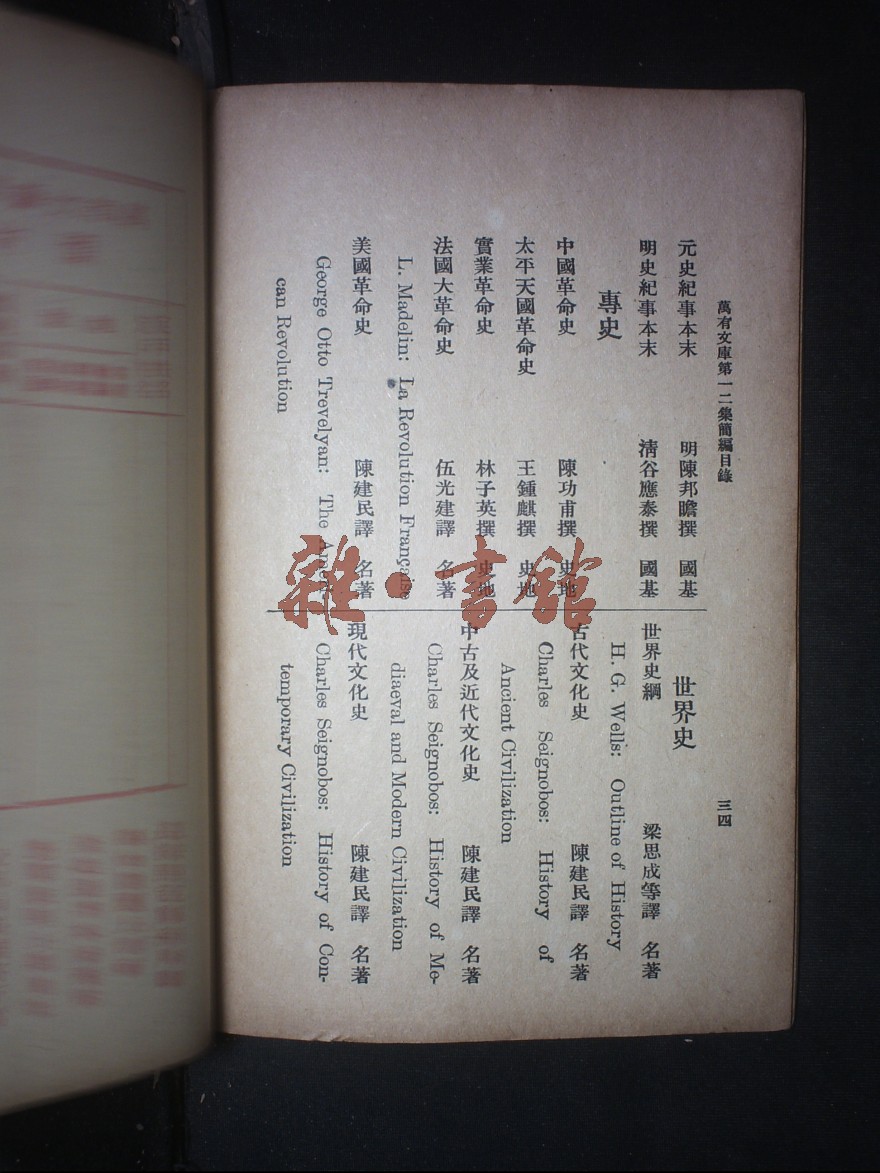 萬有文庫第一二集簡編目錄
三四
元史紀事本末 明陳邦瞻撰 國基
明史紀事本末 清谷應泰撰 國基
專史
中國革命史 陳功甫撰 史地
太平天國革命史 王鍾麒撰 史地
實業革命史 林子英撰 史地
法國大革命史 伍光建譯 名著
L. Madelin: La Revolution Française
美國革命史 陳建民譯 名著
George Otto Trevelyan: The Ameri-
can Revolution
世界史
世界史綱 梁思成等譯 名著
H. G. Wells: Outline of History
古代文化史 陳建民譯 名著
Charles Seignobos: History of
Ancient Civilization
中古及近代文化史 陳建民譯 名著
Charles Seignobos: History of Me-
diaeval and Modern Civilization
現代文化史 陳建民譯 名著
Charles Seignobos: History of Con-
temporary Civilization
雜·書館